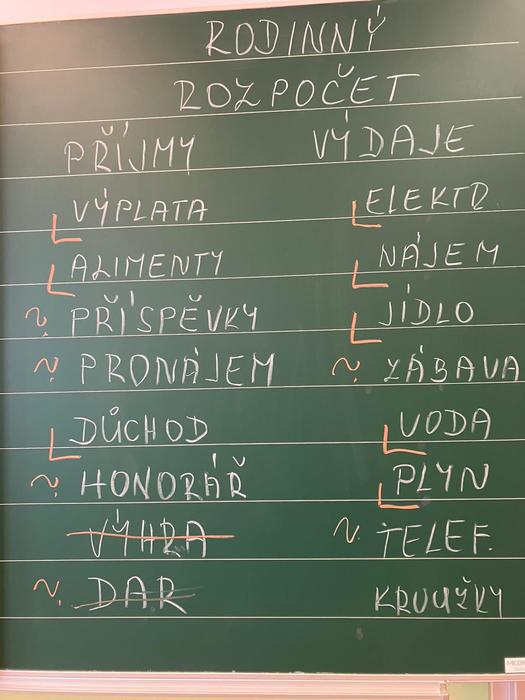 RODINNÝ
ROZPOČET
PŘÍJMY VÝDAJE
VÝPLATA ELEKTR.
ALIMENTY NÁJEM
~ PŘÍSPĚVKY JÍDLO
~ PRONÁJEM ~ ZÁBAVA
DŮCHOD VODA
~ HONORÁŘ PLYN
VÝHRA ~ TELEF.
~ DAR KROUŽKY